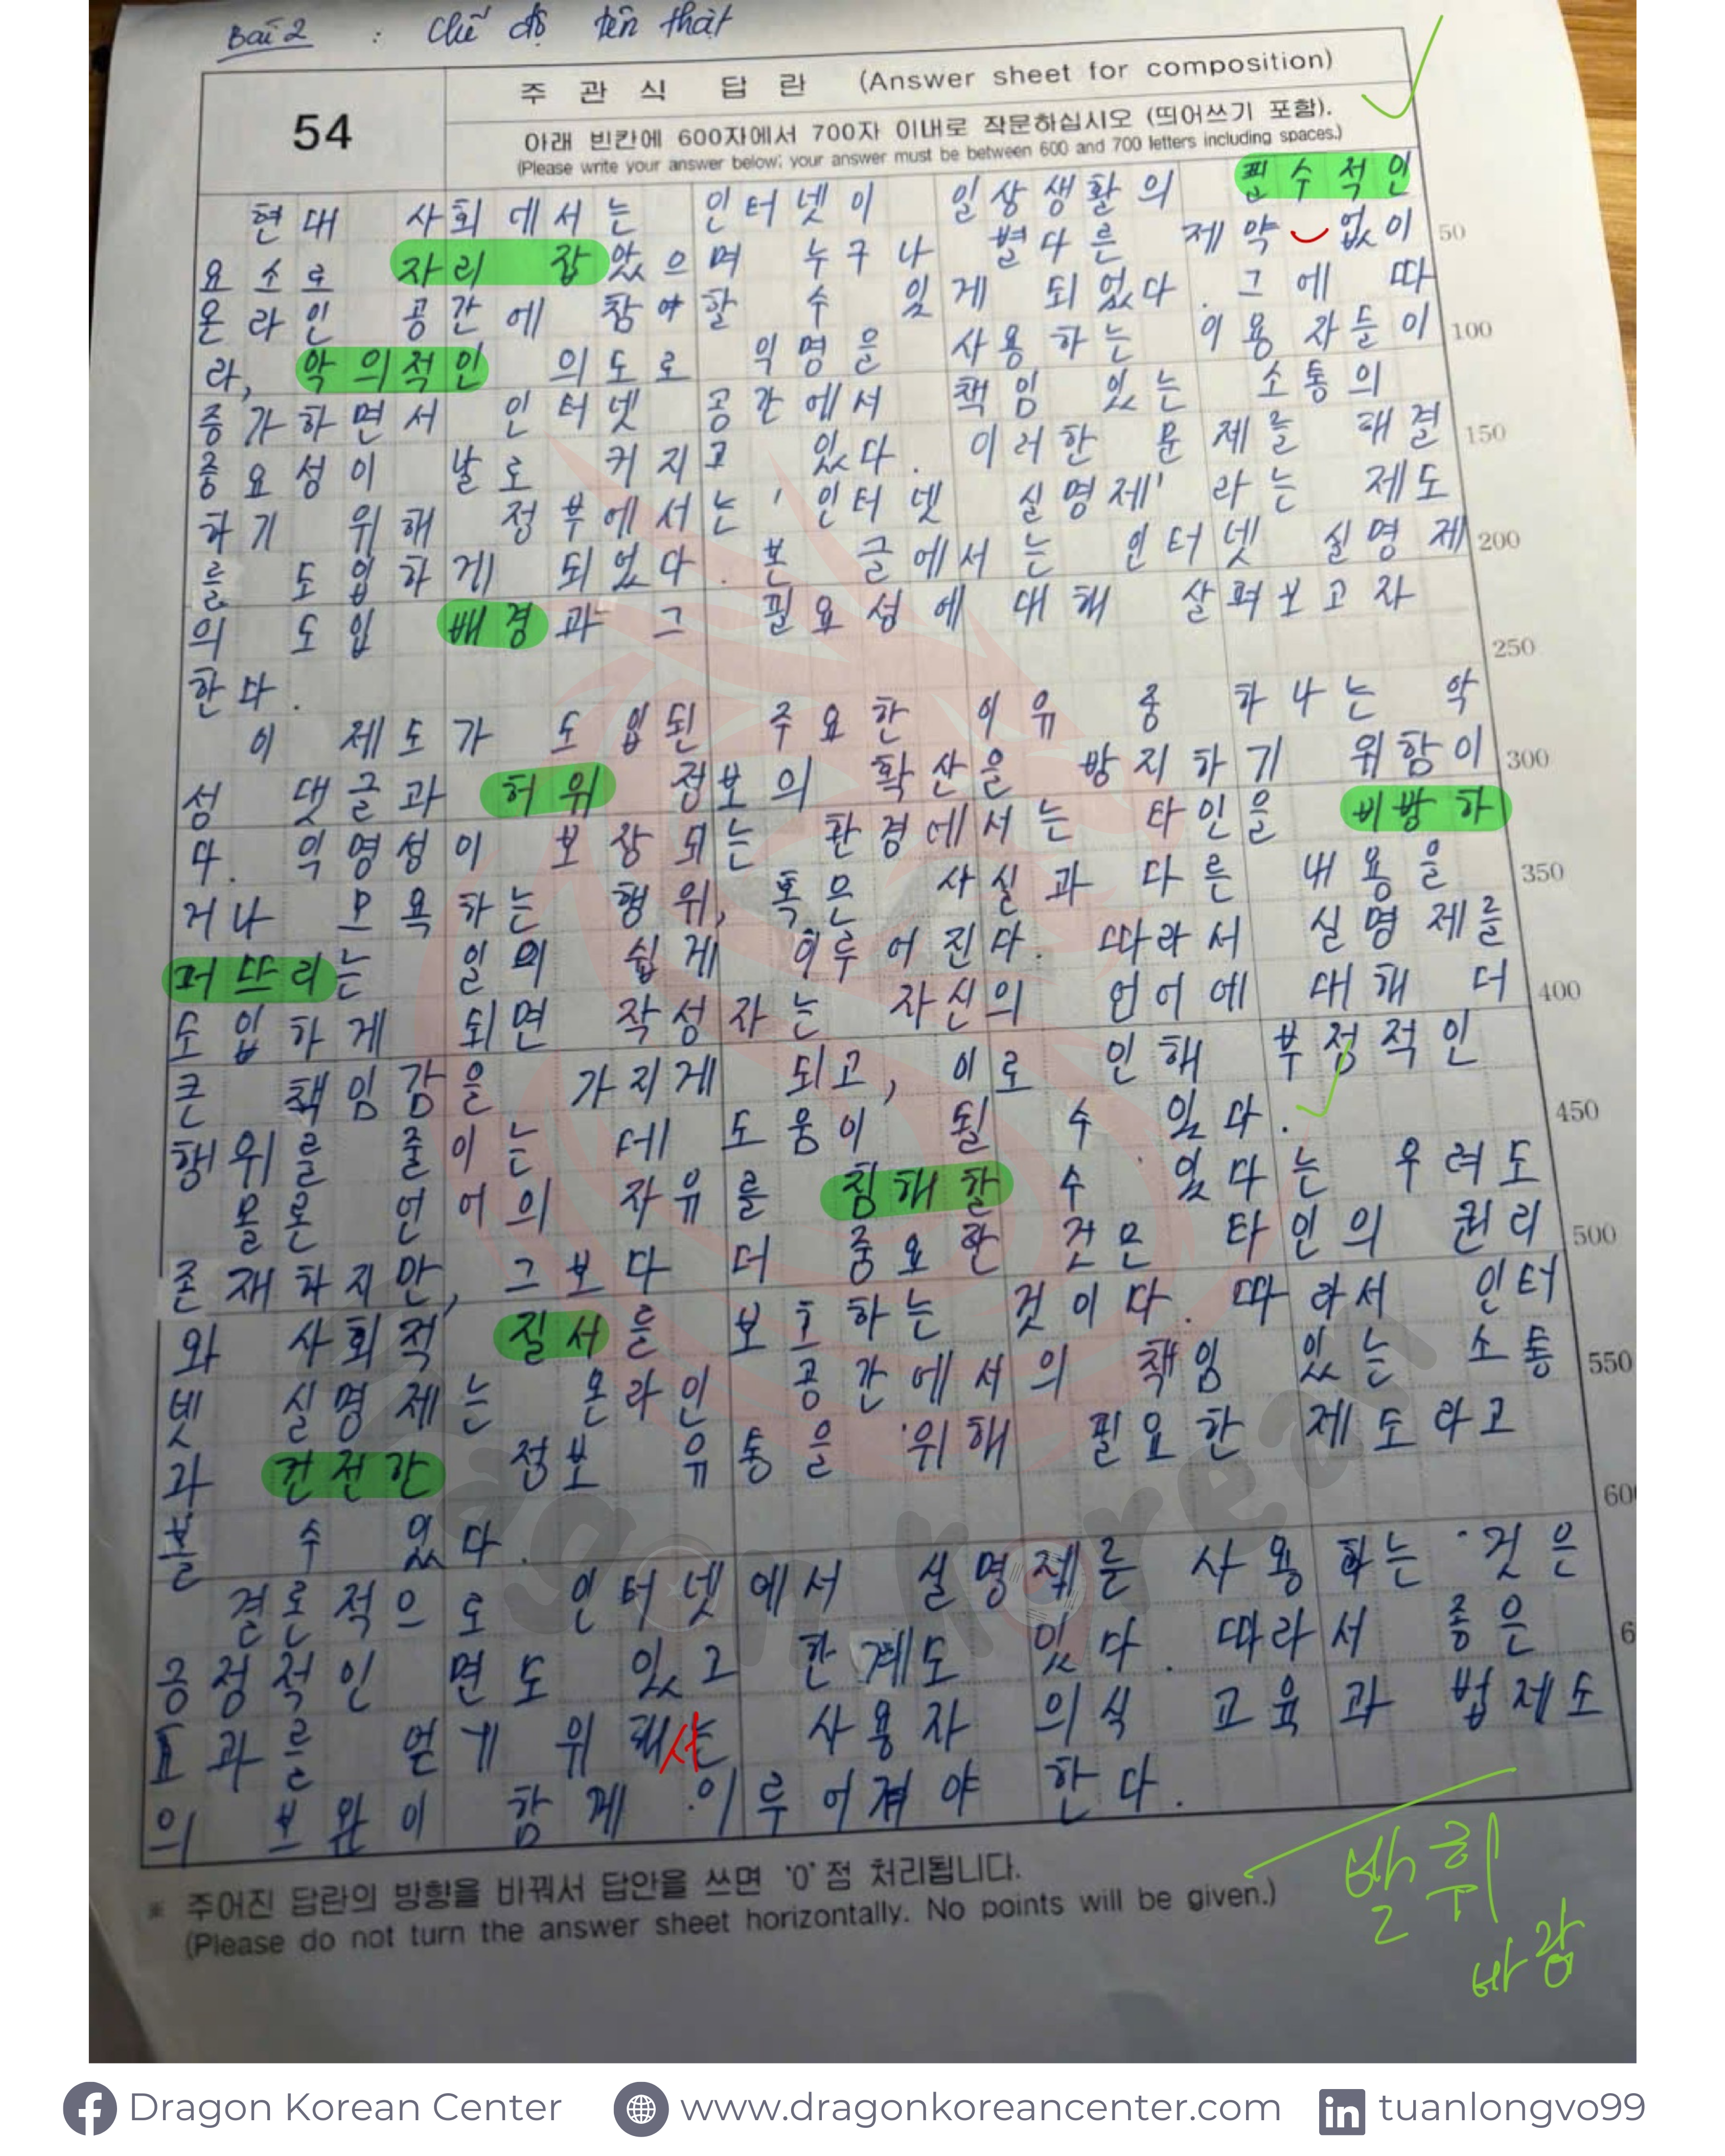 Bài 2 : Chế độ tên thật
54
주 관 식 답 란 (Answer sheet for composition)
아래 빈칸에 600자에서 700자 이내로 작문하십시오 (띄어쓰기 포함).
(Please write your answer below; your answer must be between 600 and 700 letters including spaces.)
현대 사회에서는 인터넷이 일상생활의 필수적인
요소로 자리 잡았으며 누구나 별다른 제약 없이
50
온라인 공간에 참여할 수 있게 되었다. 그에 따
라, 악의적인 의도로 익명을 사용하는 이용자들이
100
증가하면서 인터넷 공간에서 책임 있는 소통의
중요성이 날로 커지고 있다. 이러한 문제를 해결
150
하기 위해 정부에서는 '인터넷 실명제' 라는 제도
를 도입하게 되었다. 본 글에서는 인터넷 실명제
200
의 도입 배경과 그 필요성에 대해 살펴보고자
한다.
250
이 제도가 도입된 주요한 이유 중 하나는 악
성 댓글과 허위 정보의 확산을 방지하기 위함이
300
다. 익명성이 보장되는 환경에서는 타인을 비방하
거나 모욕하는 행위, 혹은 사실과 다른 내용을
350
퍼뜨리는 일이 쉽게 이루어진다. 따라서 실명제를
도입하게 되면 작성자는 자신의 언어에 대해 더
400
큰 책임감을 가지게 되고, 이로 인해 부정적인
행위를 줄이는 데 도움이 될 수 있다.
450
물론 언어의 자유를 침해할 수 있다는 우려도
존재하지만, 그보다 더 중요한 것은 타인의 권리
500
와 사회적 질서를 보호하는 것이다. 따라서 인터
넷 실명제는 온라인 공간에서의 책임 있는 소통
550
과 건전한 정보 유통을 위해 필요한 제도라고
볼 수 있다.
600
결론적으로 인터넷에서 실명제를 사용하는 것은
긍정적인 면도 있고 한계도 있다. 따라서 좋은
6
효과를 얻기 위해서는 사용자 의식 교육과 법제도
의 보완이 함께 이루어져야 한다.
발휘
바람
※ 주어진 답란의 방향을 바꿔서 답안을 쓰면 '0'점 처리됩니다.
(Please do not turn the answer sheet horizontally. No points will be given.)
Dragon Korean
Dragon Korean Center www.dragonkoreancenter.com in tuanlongvo99